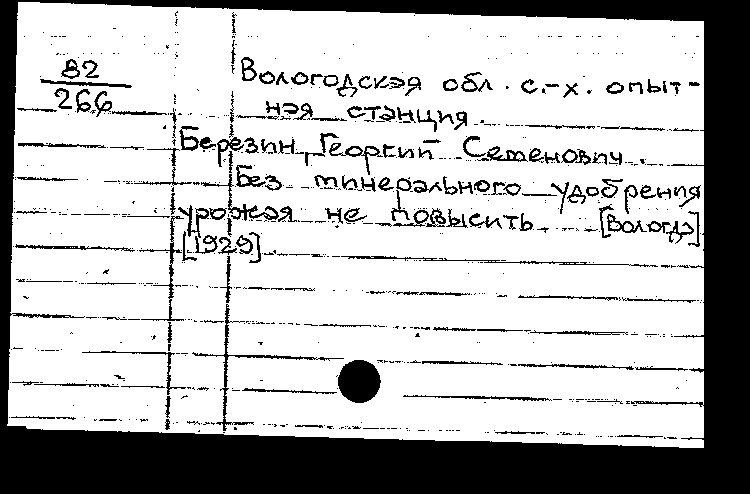 82
266
Вологодская обл. с.-х. опыт-
ная станция.
Березин, Георгий Семенович.
Без минерального удобрения
урожая не повысить. [Вологда]
[1929].